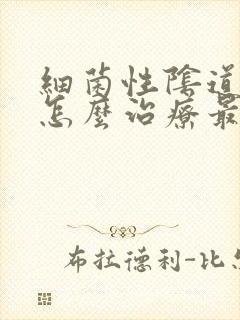 細菌性陰道
怎麼治療最
布拉德利-比